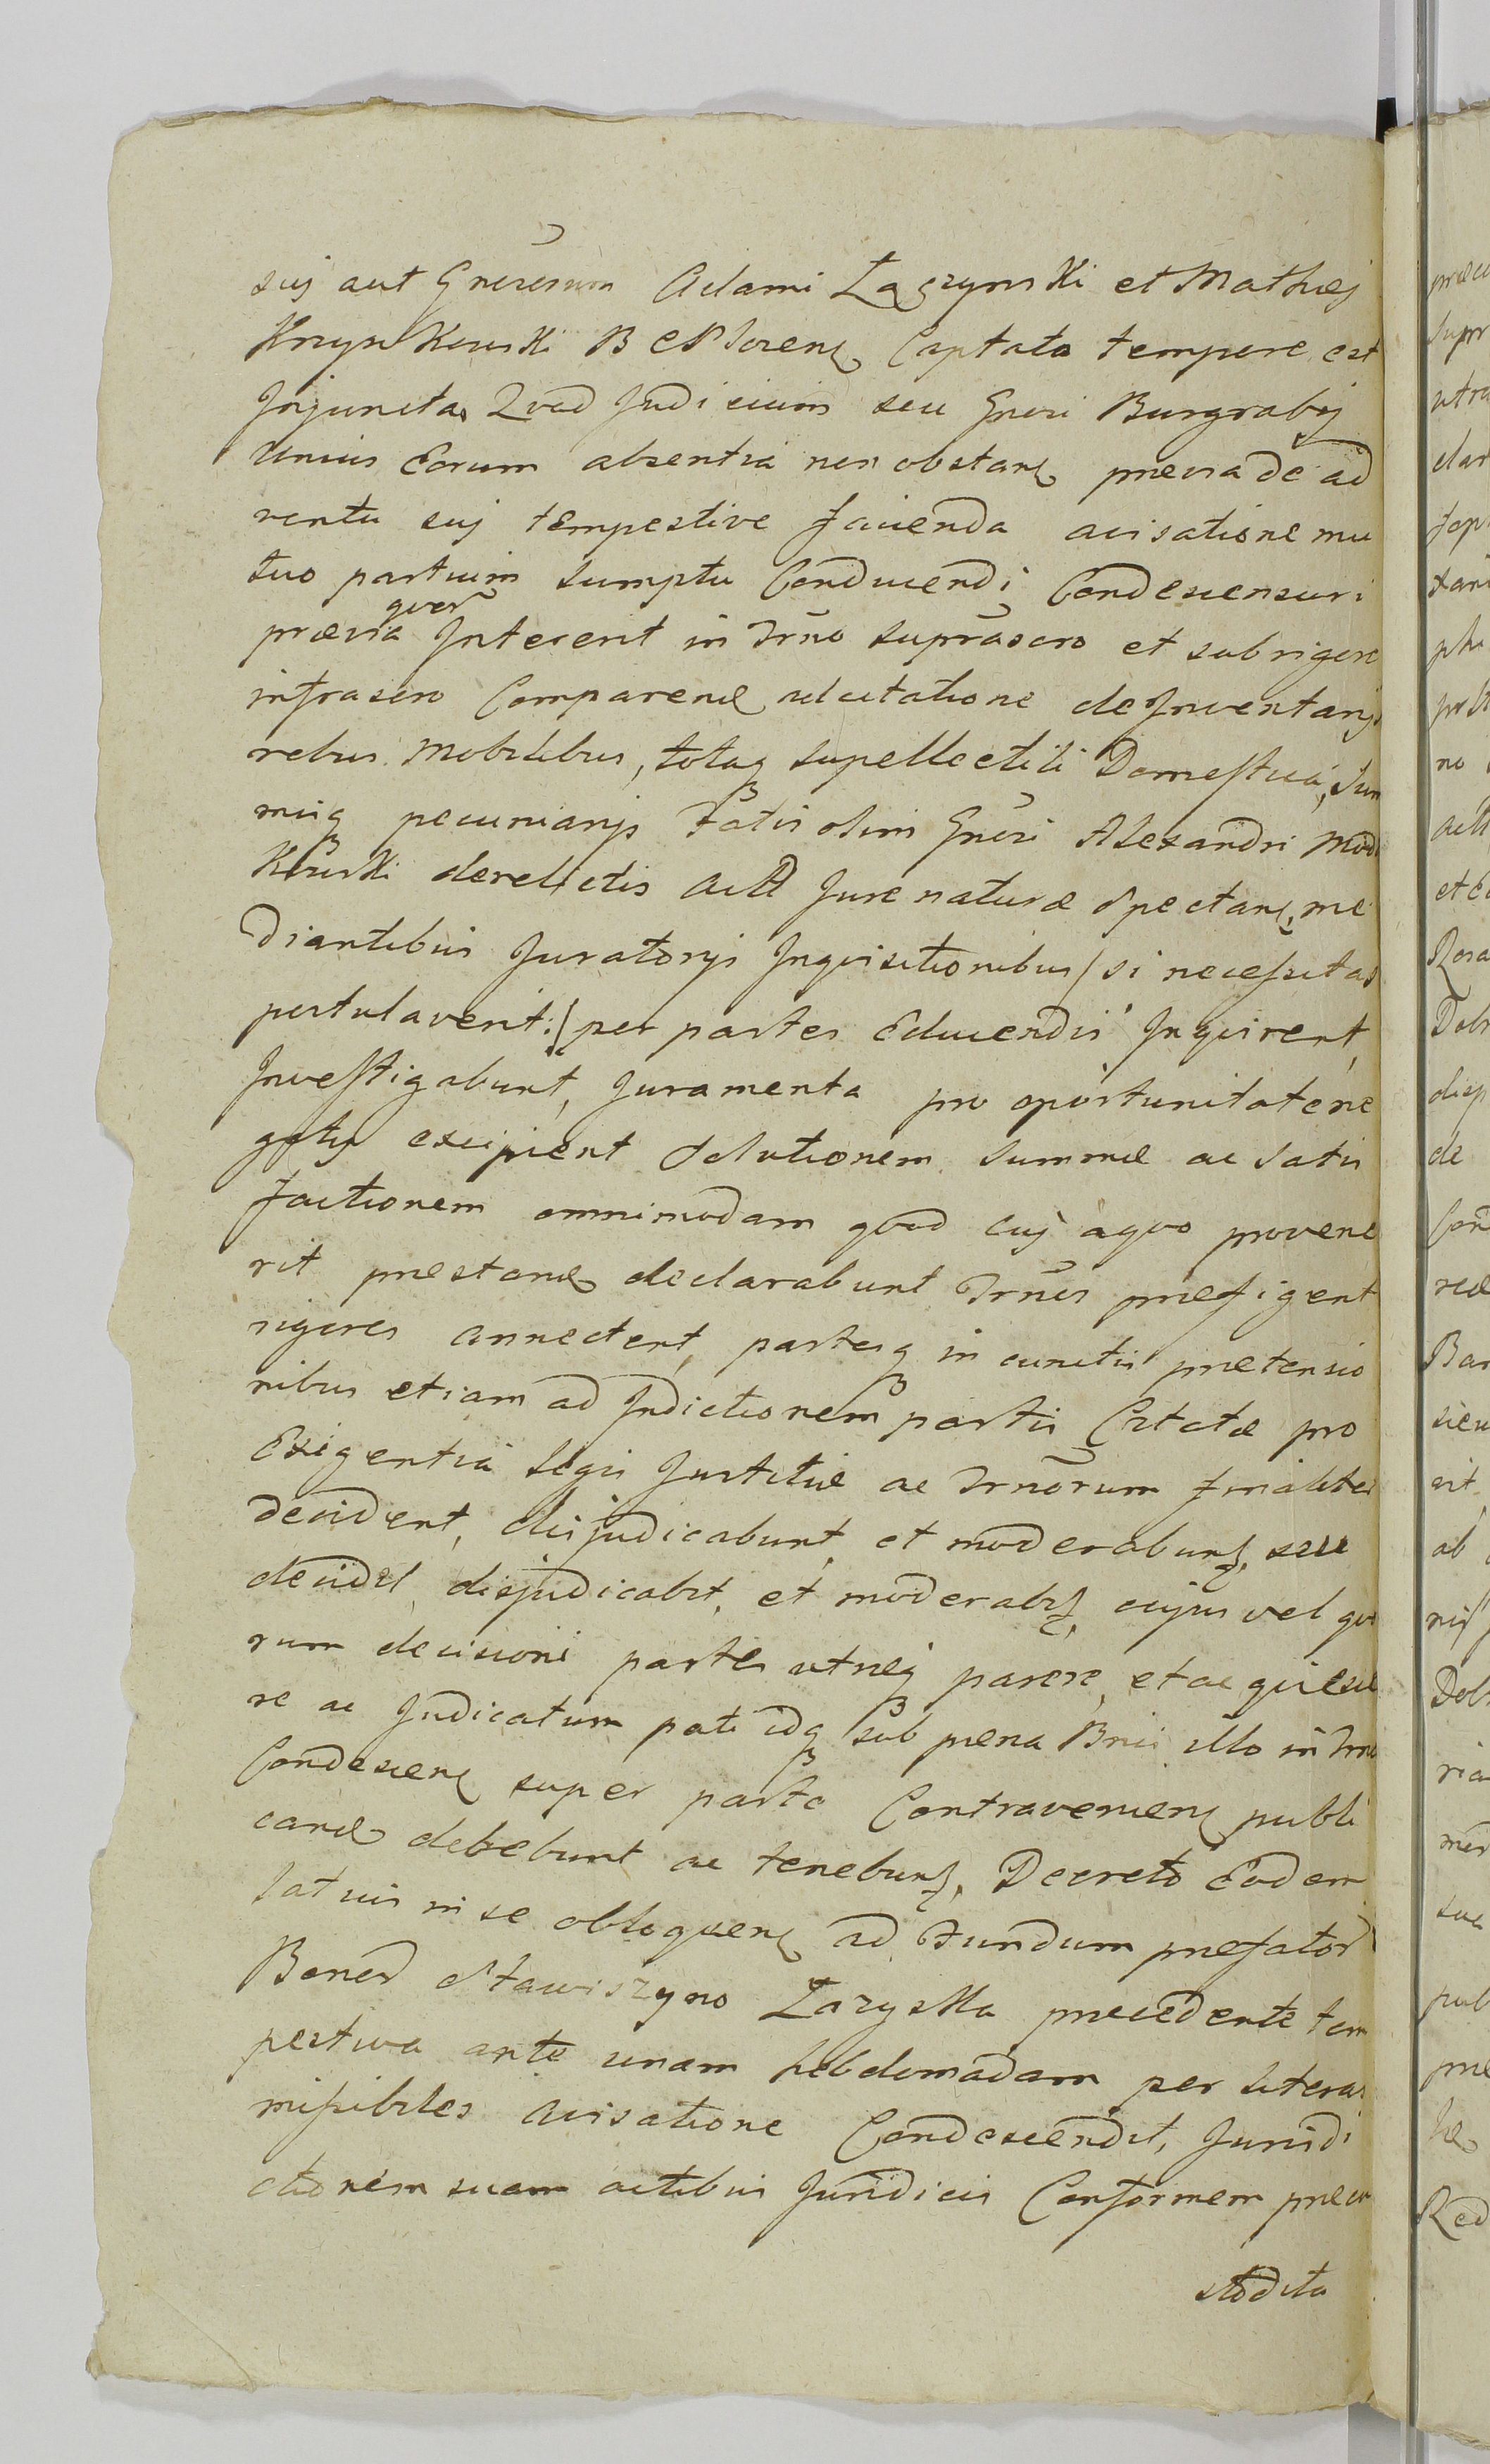 suj aut Gnerosum Adami Łączynski et Mathiej
Krzynkowski B C Plocen. Captato tempore est
Injuncta Quod Judicium seu Gneri Burgrabij
Unius Eorum absentia non obstan. previa de ad
ventu suj tempestive facienda avisatione mu
tuo partium sumptu Conducendi Condescensuri
prævia quer Interent in Trno suprascro et sub rigore
infrascro Comparend adcitatione de Inventarijs
rebus Mobilibus, totaq supellectili Domestica, Sum
misq pecuniarijs Fatis olim Gneri Alexandri Mod
kowski derelictis Actt Jure naturæ Spectan. me
diantibus Juratorijs Inquisitionibus /: si necessitas
postulaverit :/ per partes Educendis Inquirent,
Investigabunt, Juramenta pro oportunitate ne
gotij excipient Solutionem summæ ac satis
factionem omnimodam quod cuj aquo provene
rit prestand declarabunt Trnos prefigent
rigores annectent, partesq in cunctis pretensio
nibus etiam ad Indictionem partis Citatæ pro
Exigentia legis Justitiæ ac Trnorum finaliter
decident, disjudicabunt, et moderabunt. seu
decidet, disjudicabit, et moderabit. cujus vel quo
rum decisioni partes utræq parere, et acquiesce
re ac Judicatum pati idq sub pena Bnis illo in Trno
Condescen. super parte Contravenien. publi
cand debebunt ac tenebunt. Decreto Eodem
latius in se obloquen. ad Fundum prefator
Bonor Stawiszyno Łazyska precedente tem
pestiva ante unam hebdomadam per literas
missibiles avisatione Condescendit, Jurisdi
ctionem suam actibus Juridicis Conformem precu
stodita